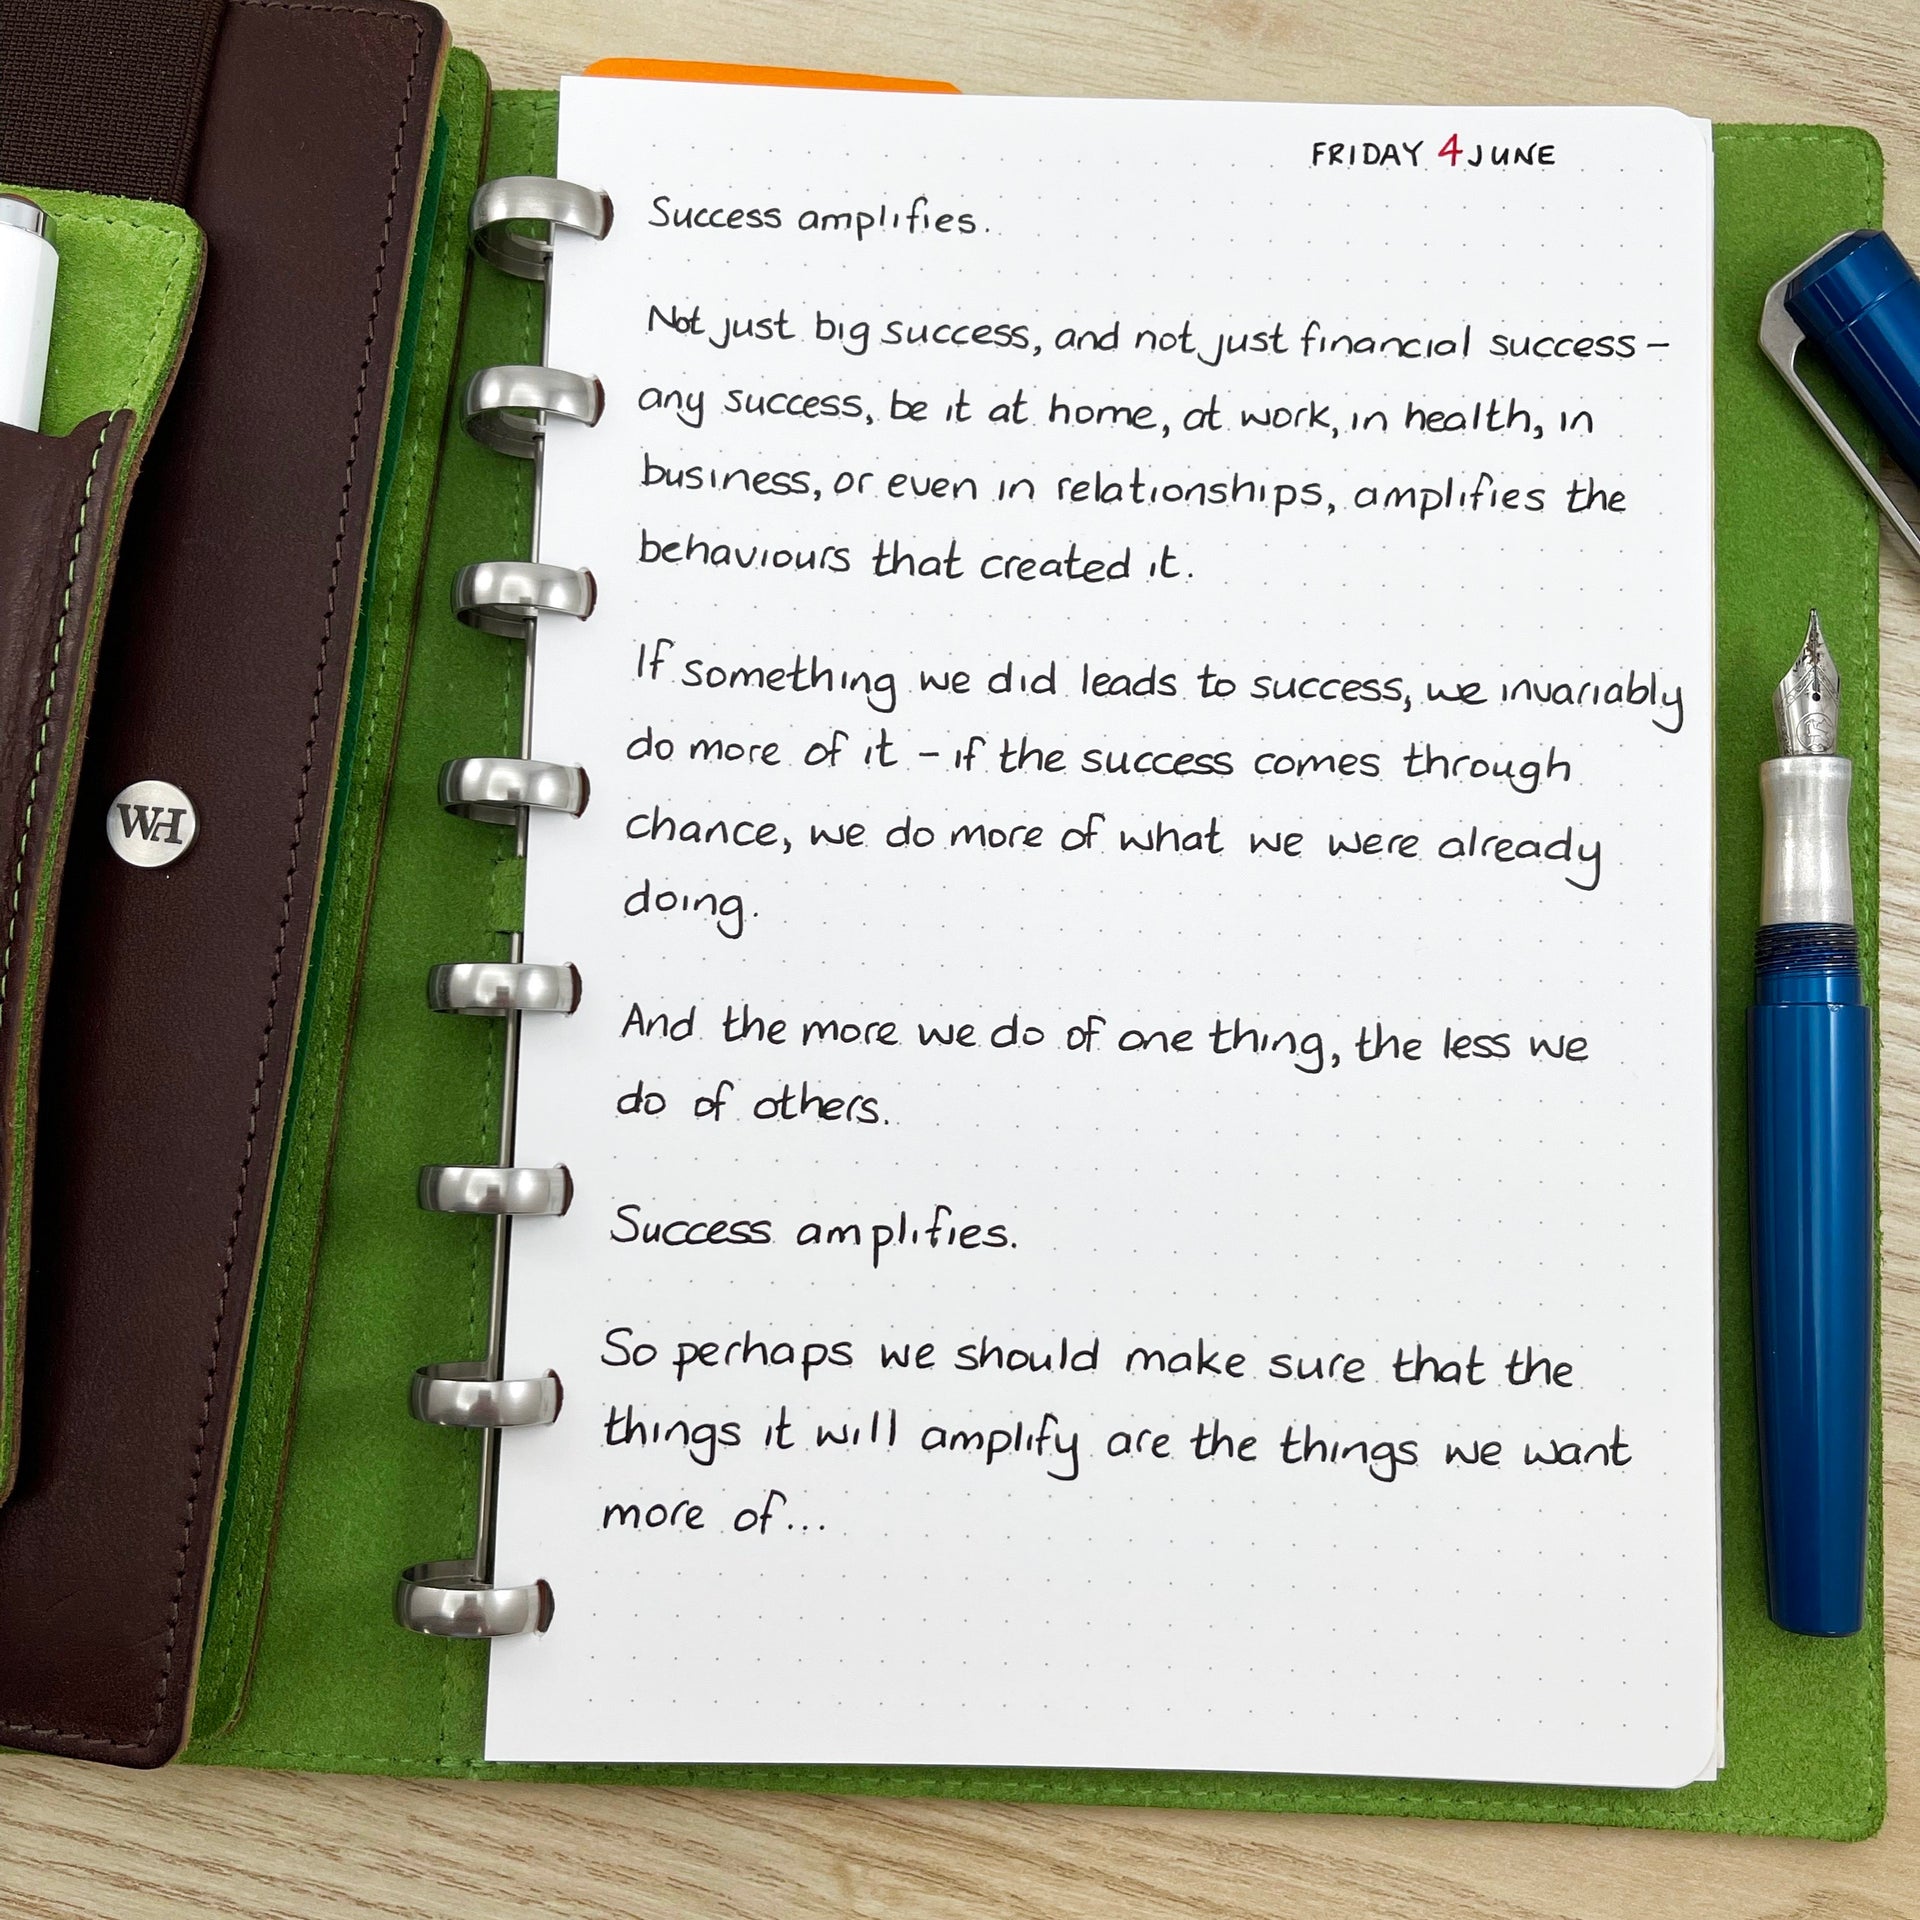 FRIDAY 4 JUNE
Success amplifies.
Not just big success, and not just financial success –
any success, be it at home, at work, in health, in
business, or even in relationships, amplifies the
behaviours that created it.
If something we did leads to success, we invariably
do more of it – if the success comes through
chance, we do more of what we were already
doing.
And the more we do of one thing, the less we
do of others.
Success amplifies.
So perhaps we should make sure that the
things it will amplify are the things we want
more of...
WH